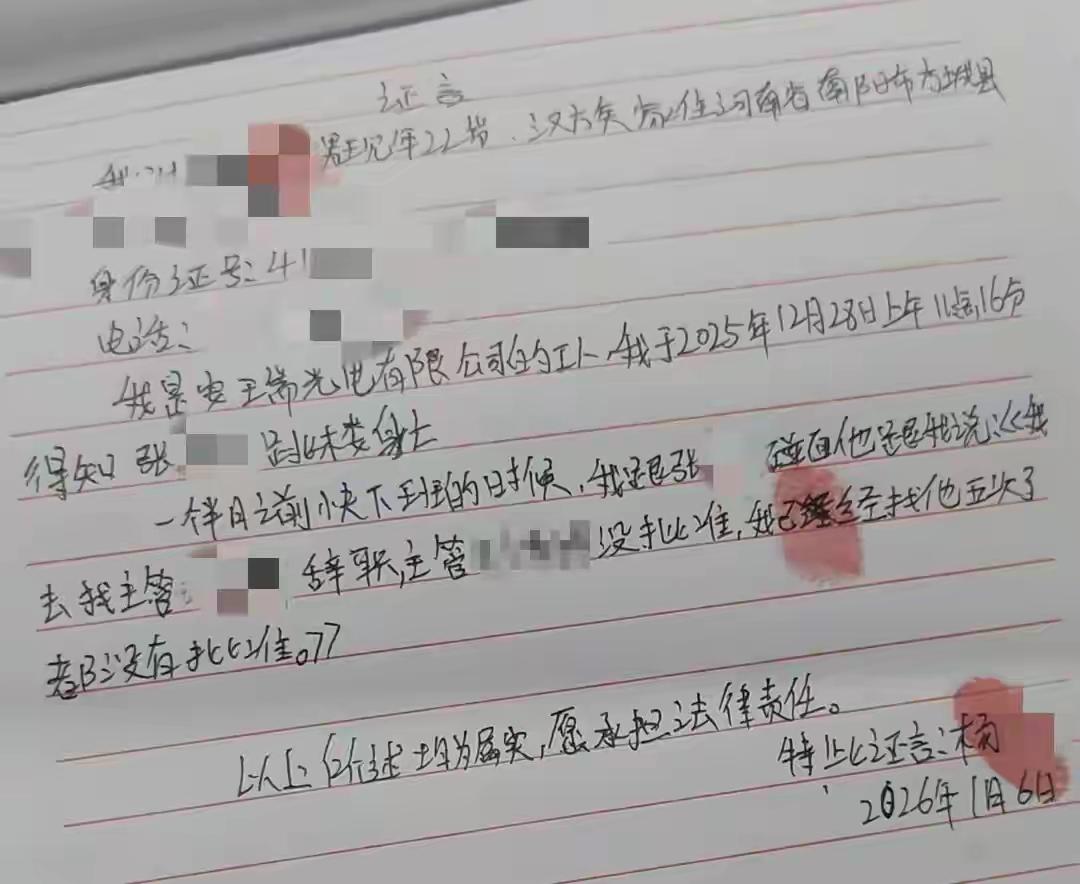 证言
我叫 男 现年22岁，汉族 家住河南省南阳市方城县
身份证号：41
电话：
我是安 瑞光电有限公司的工人，我于2025年12月28日上午11点16分
得知张 跳楼
一个半月之前 快下班的时候，我跟张 碰面他跟我说：《我
去找主管 辞职，主管 没批准，我已经找他五次了
都没有批准。》
以上 述均为属实，愿承担法律责任。
特此证言：杨
2026年1月6日